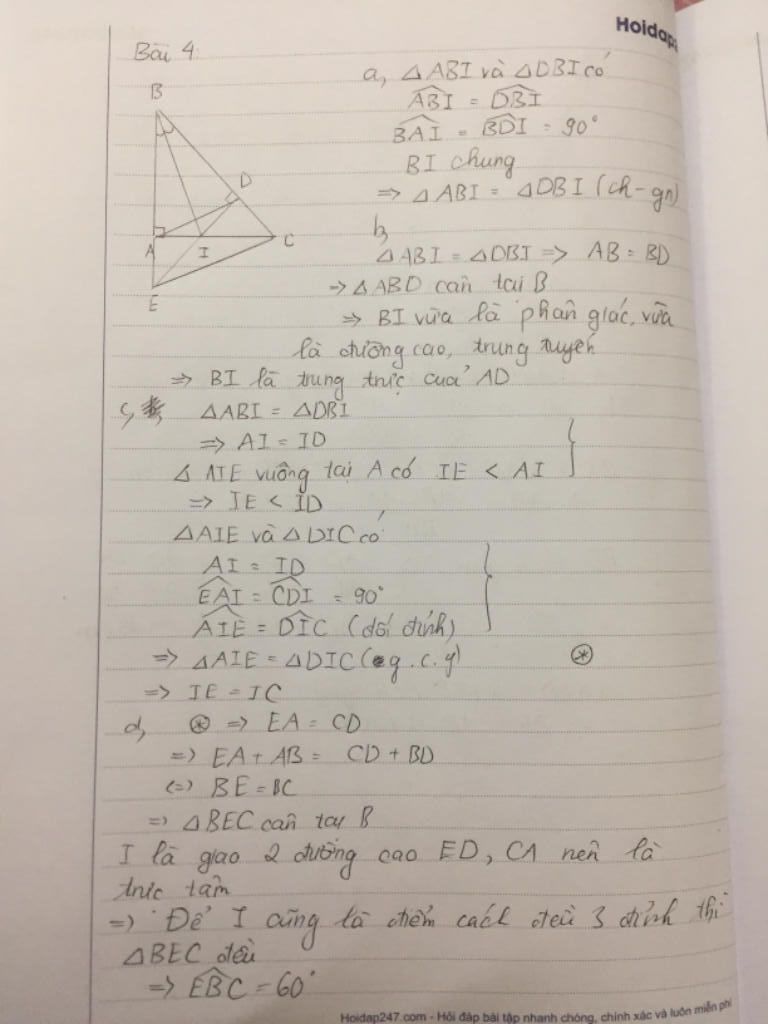 Hoidap
Bài 4:
a, △ABI và △DBI có
ABI = DBI
BAI = BDI = 90°
BI chung
=> △ABI = △DBI (ch-gn)
b,
△ABI = △DBI => AB = BD
=> △ABD cân tại B
=> BI vừa là phân giác, vừa
là đường cao, trung tuyến
=> BI là trung trực của AD
c,
△ABI = △DBI
=> AI = ID
△ AIE vuông tại A có IE < AI
=> IE < ID
△AIE và △DIC có
AI = ID
EAI = CDI = 90°
AIE = DIC (đối đỉnh)
=> △AIE = △DIC (g.c.g) ⊛
=> IE = IC
d, ⊛ => EA = CD
=> EA + AB = CD + BD
<=> BE = BC
=> △BEC cân tại B
I là giao 2 đường cao ED, CA nên là
trực tâm
=> Để I cũng là điểm cách đều 3 đỉnh thì
△BEC đều
=> EBC = 60°
B
D
A
I
C
E
Hoidap247.com - Hỏi đáp bài tập nhanh chóng, chính xác và luôn miễn phí